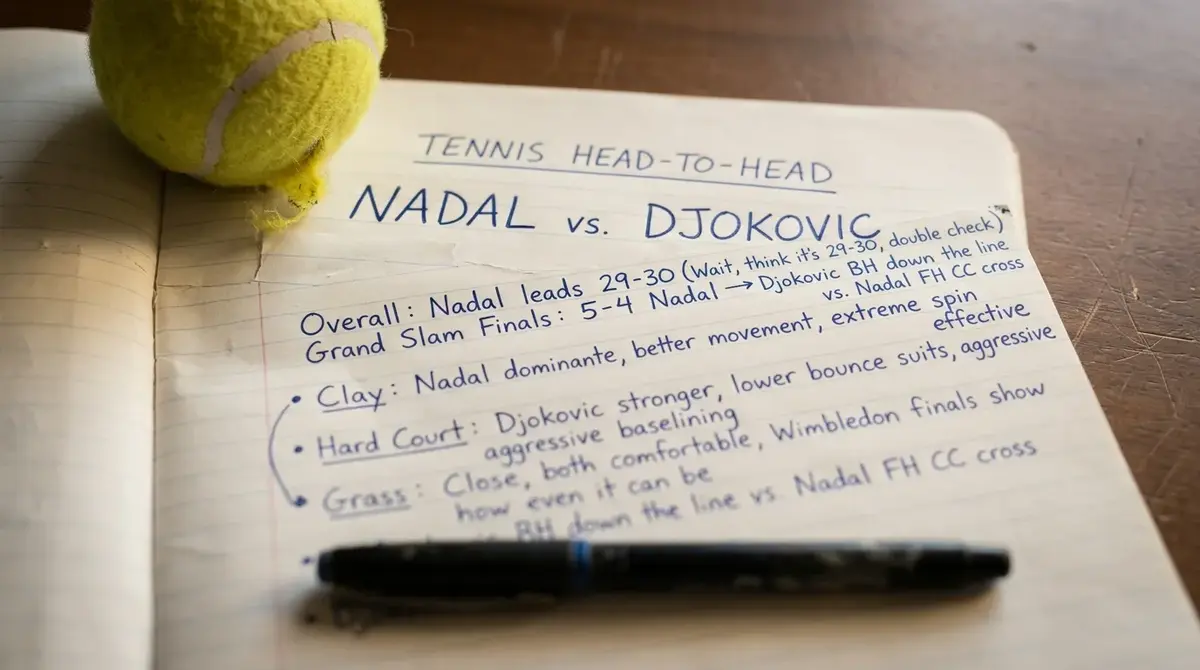 TENNIS HEAD-TO-HEAD
NADAL vs. DJOKOVIC
Overall: Nadal leads 29-30 (Wait, think it's 29-30, double check)
Grand Slam Finals: 5-4 Nadal → Djokovic BH down the line
vs. Nadal FH CC cross
• Clay: Nadal dominante, better movement, extreme spin
effective
• Hard Court: Djokovic stronger, lower bounce suits, aggressive
aggressive baselining
• Grass: Close, both comfortable, Wimbledon finals show
how even it can be
BH down the line vs. Nadal FH CC cross